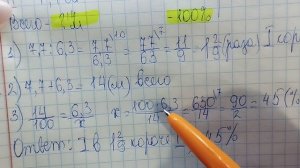 Всего - ? м - 100%
1) 7,7 : 6,3 = 7,7/6,3 = 77/63 = 11/9 = 1 2/9 (раза) I кор
2) 7,7 + 6,3 = 14 (м) всего
3) 14/100 = 6,3/x x = 100 · 6,3/14 = 630/14 = 90/2 = 45 (%
Ответ: I в 1 2/9 короче I 45%